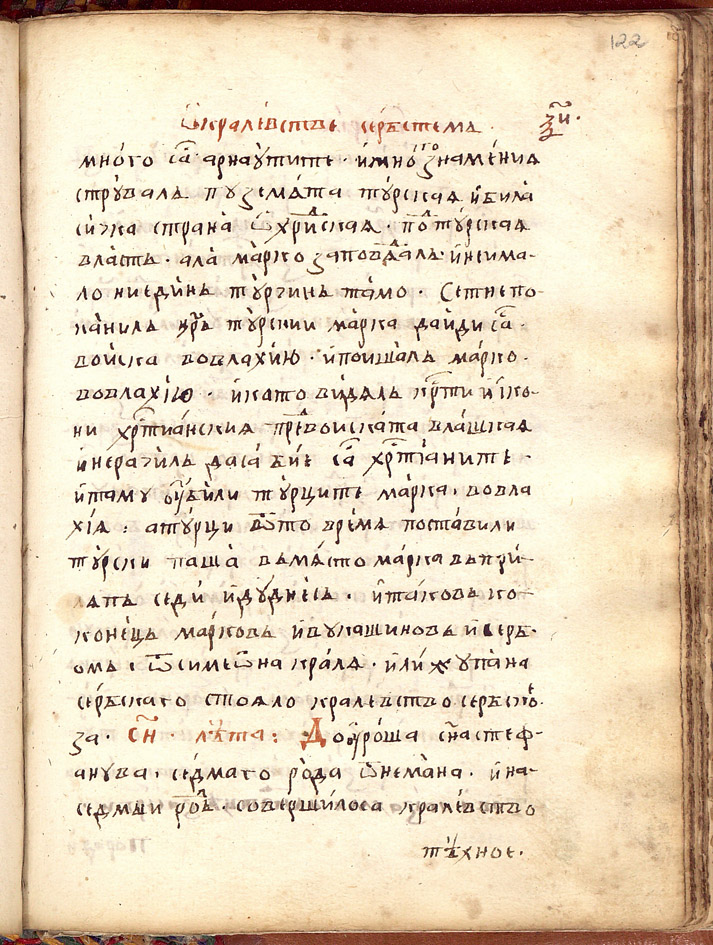 122
Ѿ кралевстве сербстемъ · з҃и ·
много са арнаутите · и много знамения
струвалъ по землята турская и била
сичка страна Ѿхридская · под турская
власть · ала марко заповядалъ · и неима-
ло ниединъ турчинъ тамо · Сетне по-
канилъ цр҃ъ турскии марка да иди са
воиска во влахию · и поишалъ марко ·
во влахїю · и като видялъ крсти и ико-
ни хрстиански я пред воиската влашская
и нерачилъ да са бие са хрстианите ·
и таму ѹбили турците марка · во вла
хїя : а турци Ѿ то время поставили
турски паша вьмясто марка вь при-
ляпь седи и до днесь · и таковъ ко-
конецъ марковъ и вукашиновъ и серб-
омъ · Ѿ симеѡна краля · или жупана
сербскаго стояло кралевство сербско ·
за · с҃н · лѣта : До ѹроша сн҃а стеф-
анува · седмаго рода Ѿ немана · и на
седмыи род · совершилоса кралевство
тѣхное ·